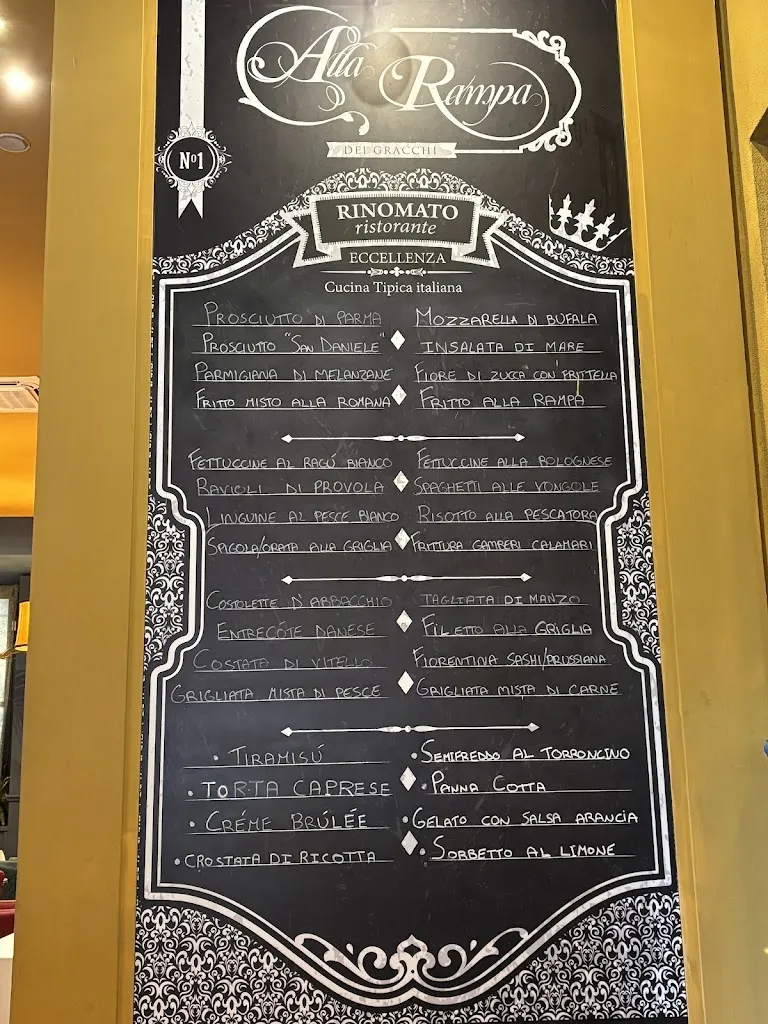 Alla Rampa
DEI GRACCHI
Nº1
RINOMATO
ristorante
ECCELLENZA
Cucina Tipica italiana
PROSCIUTTO DI PARMA
MOZZARELLA DI BUFALA
PROSCIUTTO "SAN DANIELE"
INSALATA DI MARE
PARMIGIANA DI MELANZANE
FIORE DI ZUCCA CON FRITTELLA
FRITTO MISTO ALLA ROMANA
FRITTO ALLA RAMPA
FETTUCCINE AL RAGÚ BIANCO
FETTUCCINE ALLA BOLOGNESE
RAVIOLI DI PROVOLA
SPAGHETTI ALLE VONGOLE
LINGUINE AL PESCE BIANCO
RISOTTO ALLA PESCATORA
SPIGOLA/ORATA ALLA GRIGLIA
FRITTURA GAMBERI CALAMARI
COSTOLETTE D'ABBACCHIO
TAGLIATA DI MANZO
ENTRECÓTE DANESE
FILETO ALLA GRIGLIA
COSTATA DI VITELLO
FIORENTINA SASHI/PRUSSIANA
GRIGLIATA MISTA DI PESCE
GRIGLIATA MISTA DI CARNE
• TIRAMISÚ
• SEMIFREDDO AL TORRONCINO
• TORTA CAPRESE
• PANNA COTTA
• CRÉME BRÚLÉE
• GELATO CON SALSA ARANCIA
• CROSTATA DI RICOTTA
• SORBETTO AL LIMONE